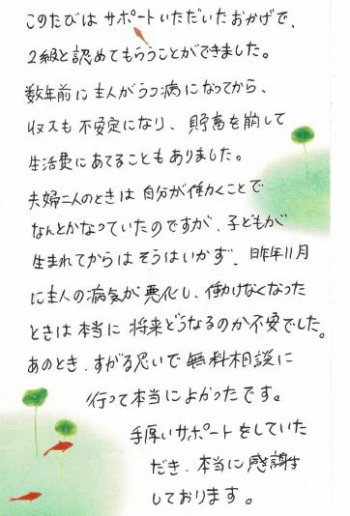 このたびは サポートいただいたおかげで、
2級と認めてもらうことができました。
数年前に主人がうつ病になってから、
収入も不安定になり、貯蓄を崩して
生活費にあてることもありました。
夫婦二人のときは自分が働くことで
なんとかなっていたのですが、子どもが
生まれてからはそうはいかず、昨年11月
に主人の病気が悪化し、働けなくなった
ときは本当に将来どうなるのか不安でした。
あのとき、すがる思いで無料相談に
行って本当によかったです。
手厚いサポートをしていた
だき、本当に感謝
しております。